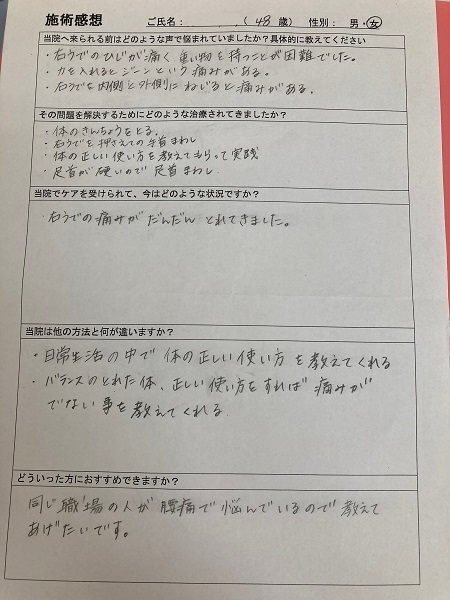 施術感想 ご氏名： （48歳） 性別： 男・女
当院へ来られる前はどのような声で悩まれていましたか？具体的に教えてください
・右うでのひじが痛く重い物を持つことが困難でした。
・力を入れるとジーンという痛みがある。
・右うでを内側と外側にねじると痛みがある。
その問題を解決するためにどのような治療されてきましたか？
・体のきんちょうをとる。
・右うでを押さえての手首まわし
・体の正しい使い方を教えてもらって実践
・足首が硬いので足首まわし
当院でケアを受けられて、今はどのような状況ですか？
右うでの痛みがだんだんとれてきました。
当院は他の方法と何が違いますか？
・日常生活の中で体の正しい使い方を教えてくれる
・バランスのとれた体、正しい使い方をすれば痛みが
でない事を教えてくれる
どういった方におすすめできますか？
同じ職場の人が腰痛で悩んでいるので教えて
あげたいです。